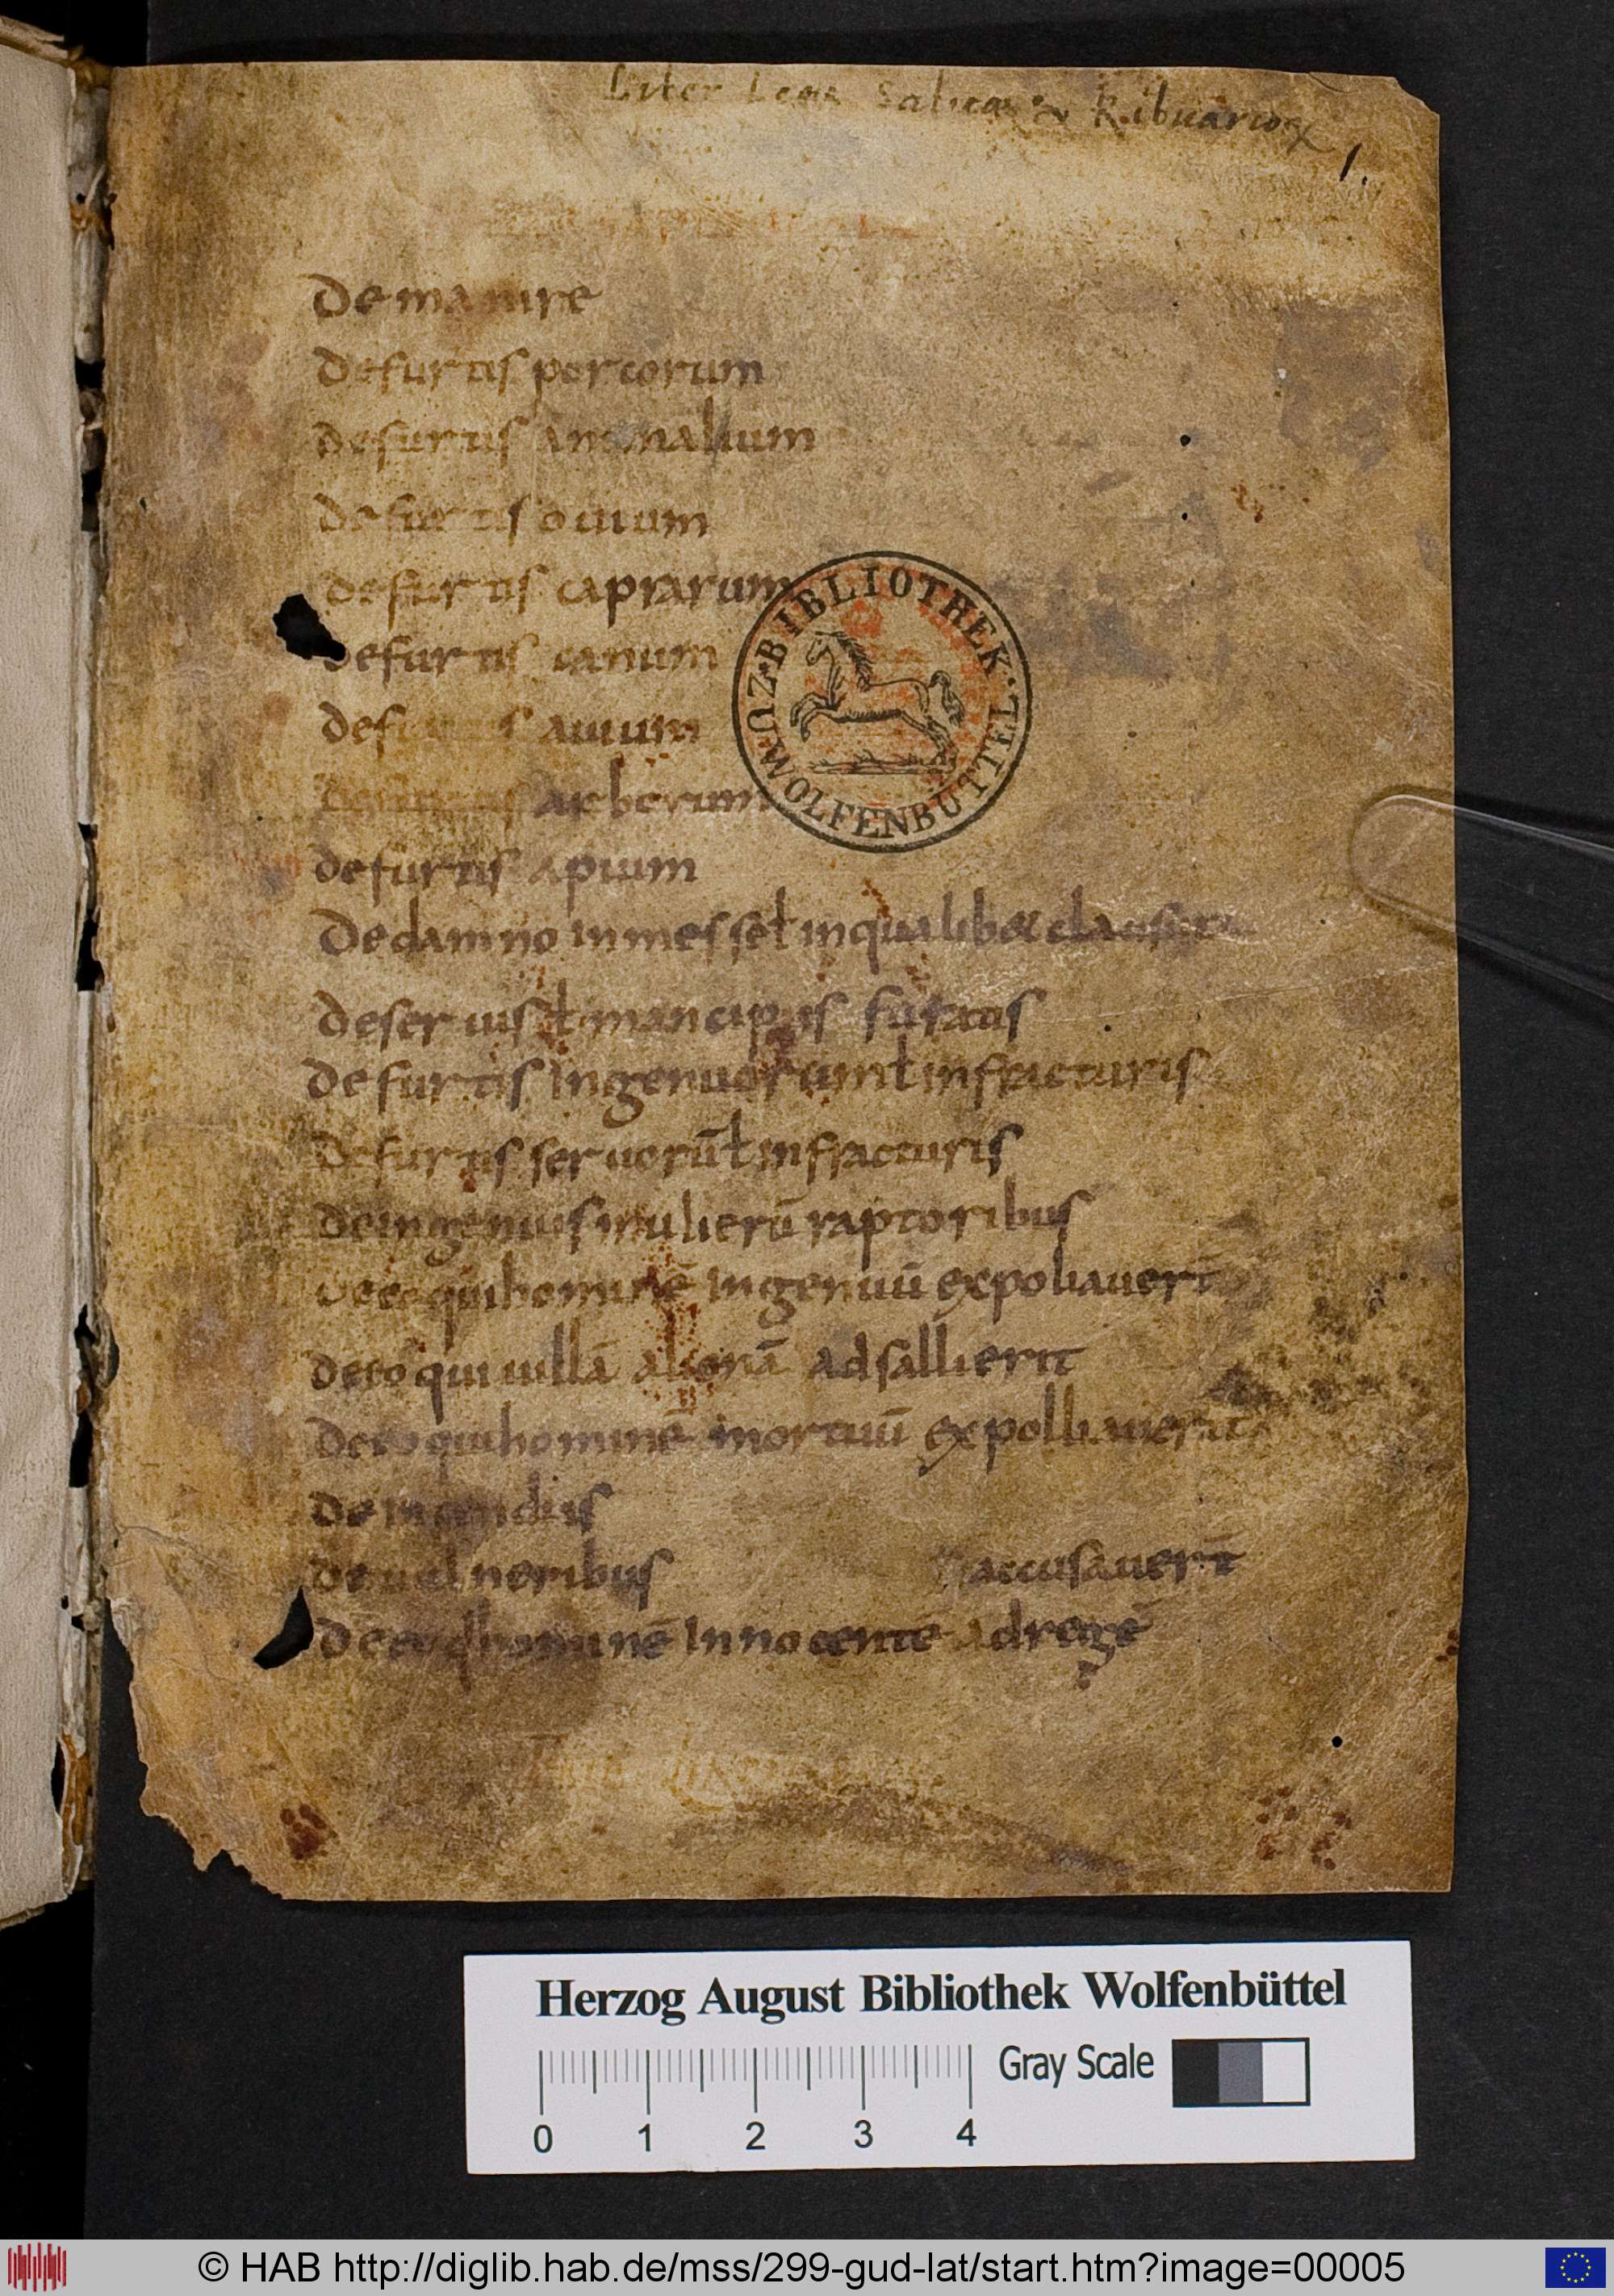 Liber Legis Salicae & Ribuariorꝝ
1.
De manire
De furtis porcorum
De furtis animalium
De furtis ouium
De furtis caprarum
De furtis canum
De furtis auium
arborum
De furtis apium
De damno in messe ł in qualib& clausura
De seruis ł mancipiis furatis
De furtis ingenuorum ł infracturis
De furtis seruorū ł infracturis
De ingenuis mulierū raptoribus
De eo qui hominē ingenuū expoliauerit
De eo qui uillā alienā adsallierit
De eo qui hominē mortuū expolliauerit
De incendiis
De uulneribus
accusauerī
De eo q hominē innocentē ad regē
BIBLIOTHEK · ZU · WOLFENBÜTTEL ·
Herzog August Bibliothek Wolfenbüttel
Gray Scale
0 1 2 3 4
© HAB http://diglib.hab.de/mss/299-gud-lat/start.htm?image=00005